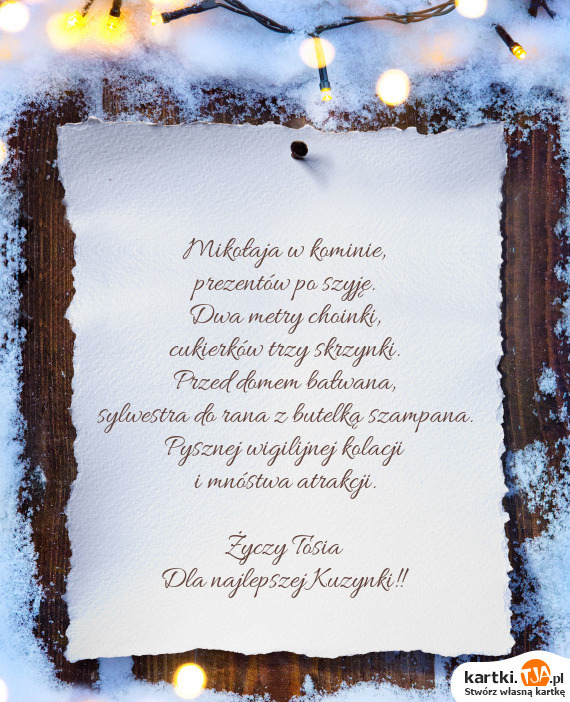 Mikołaja w kominie,
prezentów po szyję.
Dwa metry choinki,
cukierków trzy skrzynki.
Przed domem bałwana,
sylwestra do rana z butelką szampana.
Pysznej wigilijnej kolacji
i mnóstwa atrakcji.
Życzy Tosia
Dla najlepszej Kuzynki!!
kartki.TJA.pl
Stwórz własną kartkę